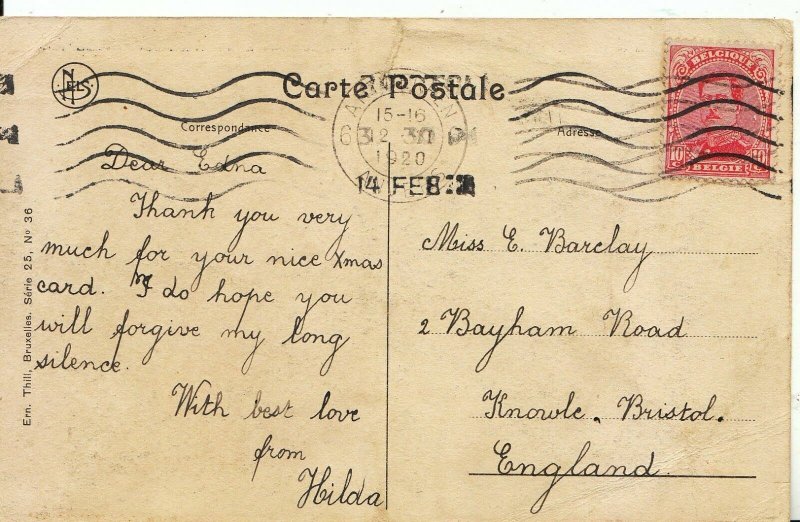 NELS
Carte Postale
15-16
1920
14 FEB
BELGIQUE
10 10
BELGIË
Correspondance
Adresse
Dear Edna
Thank you very
much for your nice Xmas
card. I do hope you
will forgive my long
silence.
With best love
from
Hilda
Miss E. Barclay
2 Bayham Road
Knowle. Bristol.
England.
Ern. Thill, Bruxelles. Série 25, No 36